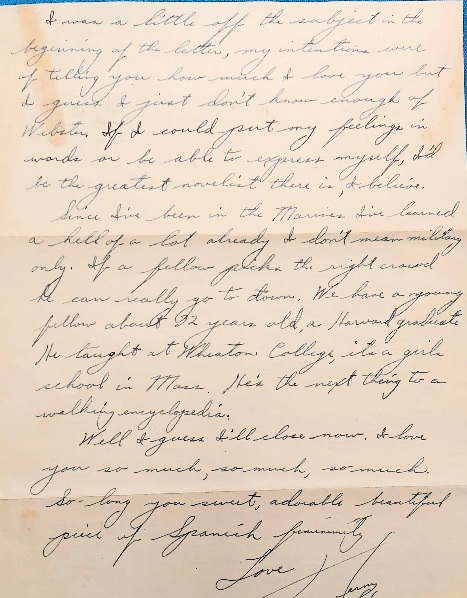 I was a little off the subject in the
beginning of the letter, my intentions were
of telling you how much I love you but
I guess I just don't know enough of
Webster. If I could put my feelings in
words or be able to express myself, I'd
be the greatest novelist there is, I believe.
Since I've been in the Marines I've learned
a hell of a lot already I don't mean military
only. If a fellow picks the right crowd
he can really go to town. We have a young
fellow about 32 years old, a Harvard graduate
He taught at Wheaton College, it's a girls
school in Mass. He's the next thing to a
walking encyclopedia.
Well I guess I'll close now. I love
you so much, so much, so much.
So-long you sweet, adorable beautiful
piece of Spanish femininity
Love